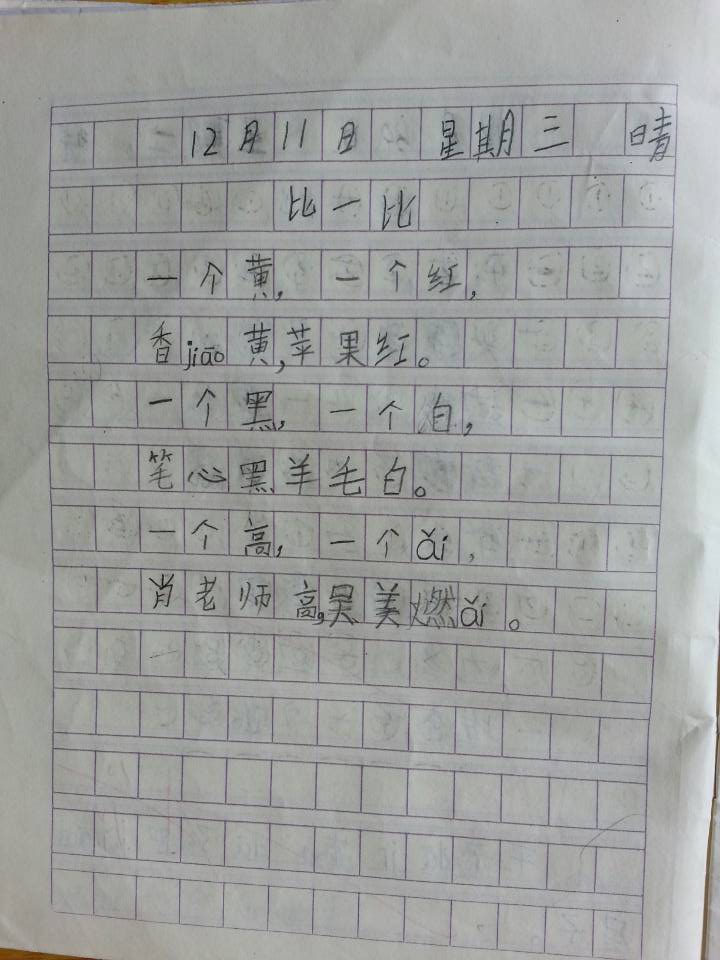 12月11日 星期三 晴
比一比
一个黄,一个红,
香jiāo黄,苹果红。
一个黑,一个白,
笔心黑羊毛白。
一个高,一个ǎi,
肖老师高,吴美燃ǎi。